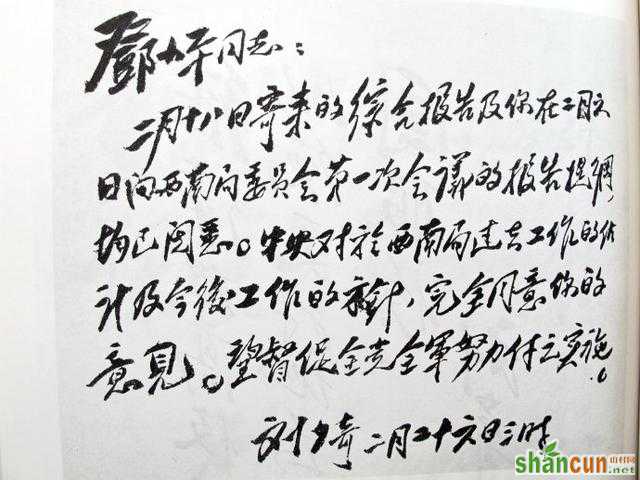 鄧小平同志：
二月十八日寄来的綜合报告及你在二月六
日向西南局委員会第一次会議的报告提綱，
均已阅悉。中央对於西南局过去工作的估
计及今後工作的方針，完全同意你的
意見。望督促全党全軍努力付之实施。
刘少奇 二月二十六日三时
shancun 山村网
.net